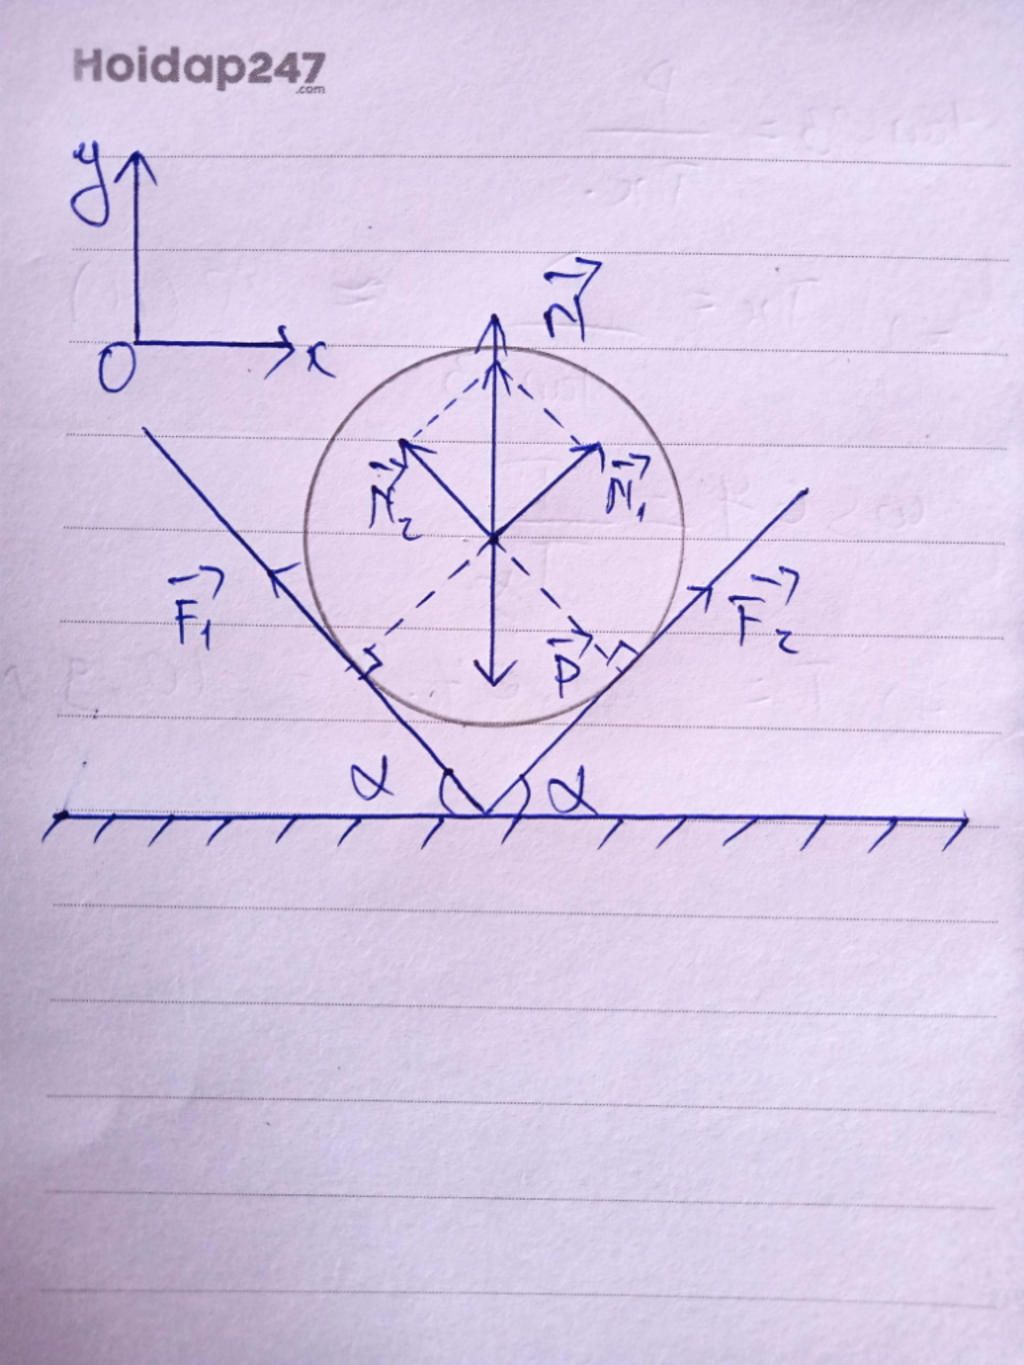 Hoidap247
.com
y
O x
N
N₂ N₁
F₁ F₂
P
α α